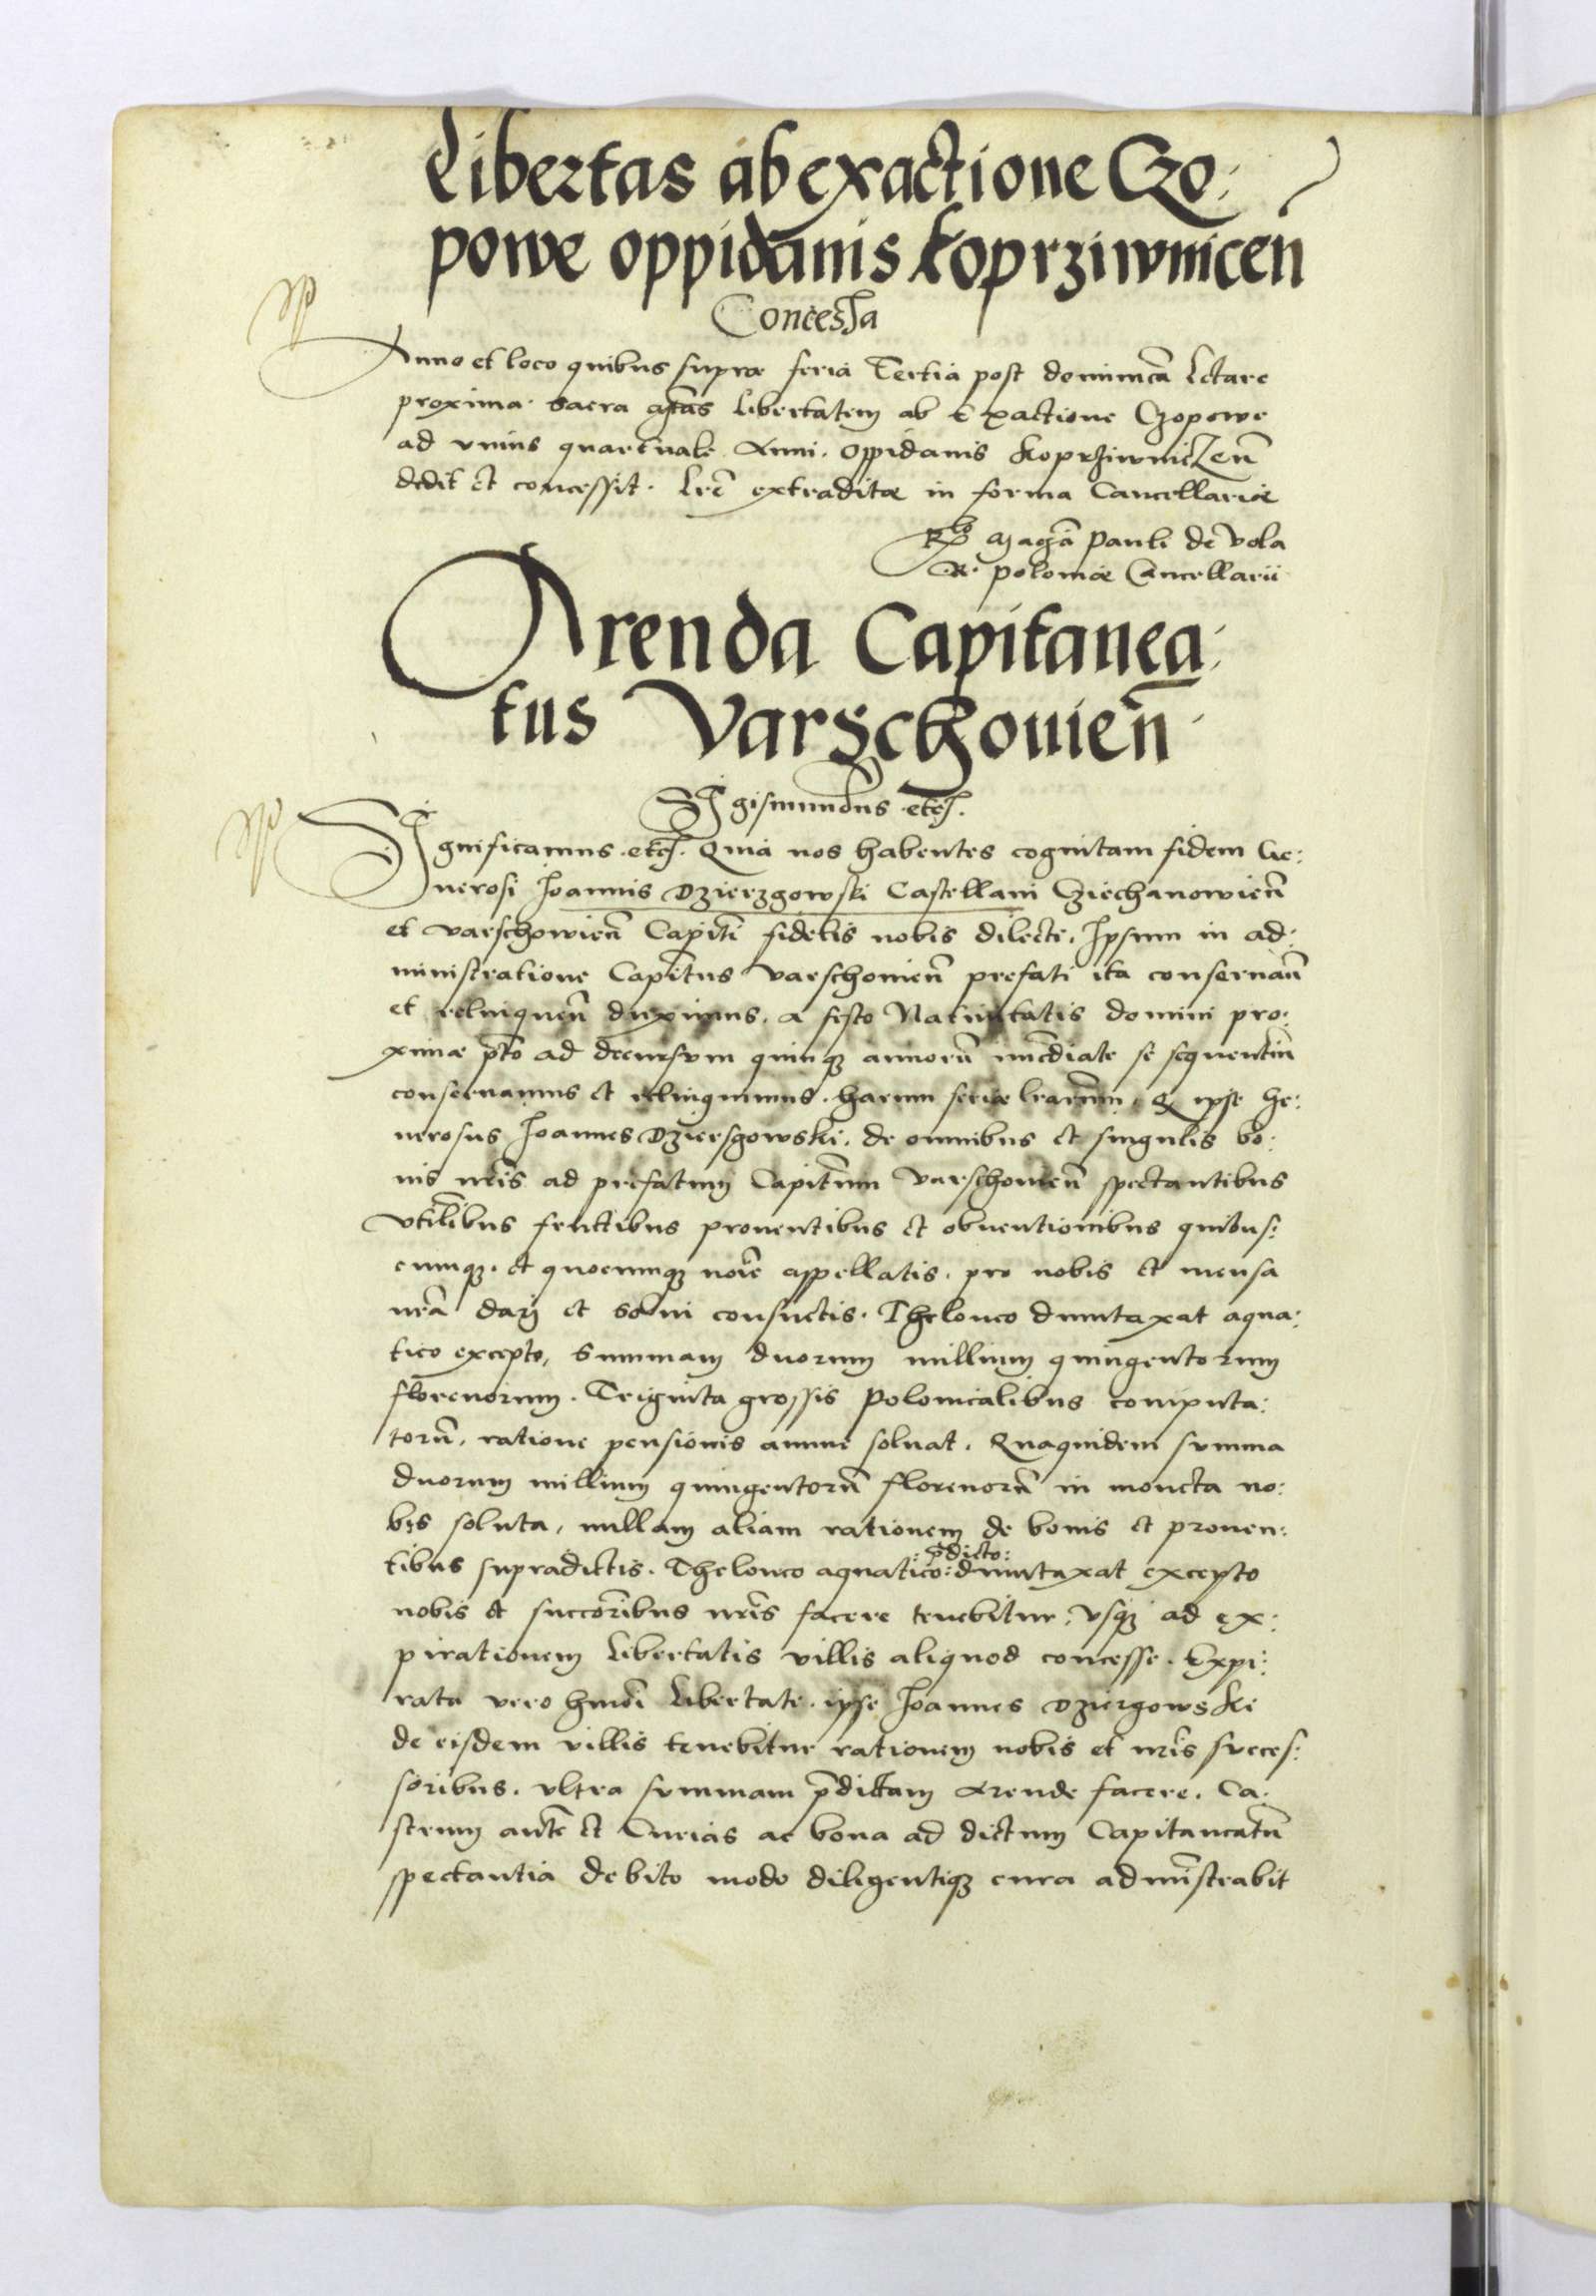 Libertas ab exactione Czo:
powe oppidanis koprziwnicen̄
Concessa
Anno et loco quibus supra feria Tertia post dominicā Lętare
proxima. Sacra Mtās libertatem ab Exactione Czopowe
ad vnius quartuale Anni. Oppidanis KoprziwnicZen̄
dedit et concessit. Lrē extraditæ in forma Cancellariæ
Rlo Magcā Pauli de Vola
R. Poloniæ Cancellarii
Arenda Capitanea:
tus Varschouien̄
Sigismundus etc.
Significamus. etc. Quia nos habentes cognitam fidem Ge:
nerosi Joannis Dzierzgowski Castellani Cziechanowien̄
et varschowien̄ Capitī fidelis nobis dilecti. Ipsum in ad:
ministratione Capitūs varschouien̄ prefati ita conseruan̄
et relinquen̄ duximus. a festo Natiuitatis domini pro:
ximæ pr̄to ad decursum quinq annorū imēdiate se sequentiū
conseruamus et relinquimus. harum seriæ lrārum, Q ipse Ge:
nerosus Joannes Dziersgowski. de omnibus et singulis bo:
nis nrīs ad prefatum Capitūm Varschouien̄ spectantibus
vtīlibus fructibus prouentibus et obuentionibus quibus:
cumq. et quocumq noīe appellatis. pro nobis et mensa
nrā dari et solui consuetis. Theloneo duntaxat aqua:
tico excepto, Summam duorum millium quingentorum
florenorum. Triginta grossis Polonicalibus computa:
torū. ratione pensionis annue soluat. Quaquidem summa
duorum millium quingentorū florenorū in moneta no:
bis soluta, nullam aliam rationem de bonis et prouen:
tibus supradictis. Theloneo aquatico :p̄dicto: duntaxat excepto
nobis et succoribus nrīs facere tenebitur, vsq ad ex:
pirationem libertatis villis aliquod concesse. Expi:
rata vero hmōi libertate. ipse Joannes Dziergowski
de eisdem villis tenebitur rationem nobis et nrīs succes:
soribus. vltra summam p̄dictam Arende facere. Ca:
strum autē et Curias ac bona ad dictum Capitaneatū
spectantia debito modo diligentiq cura admīstrabit